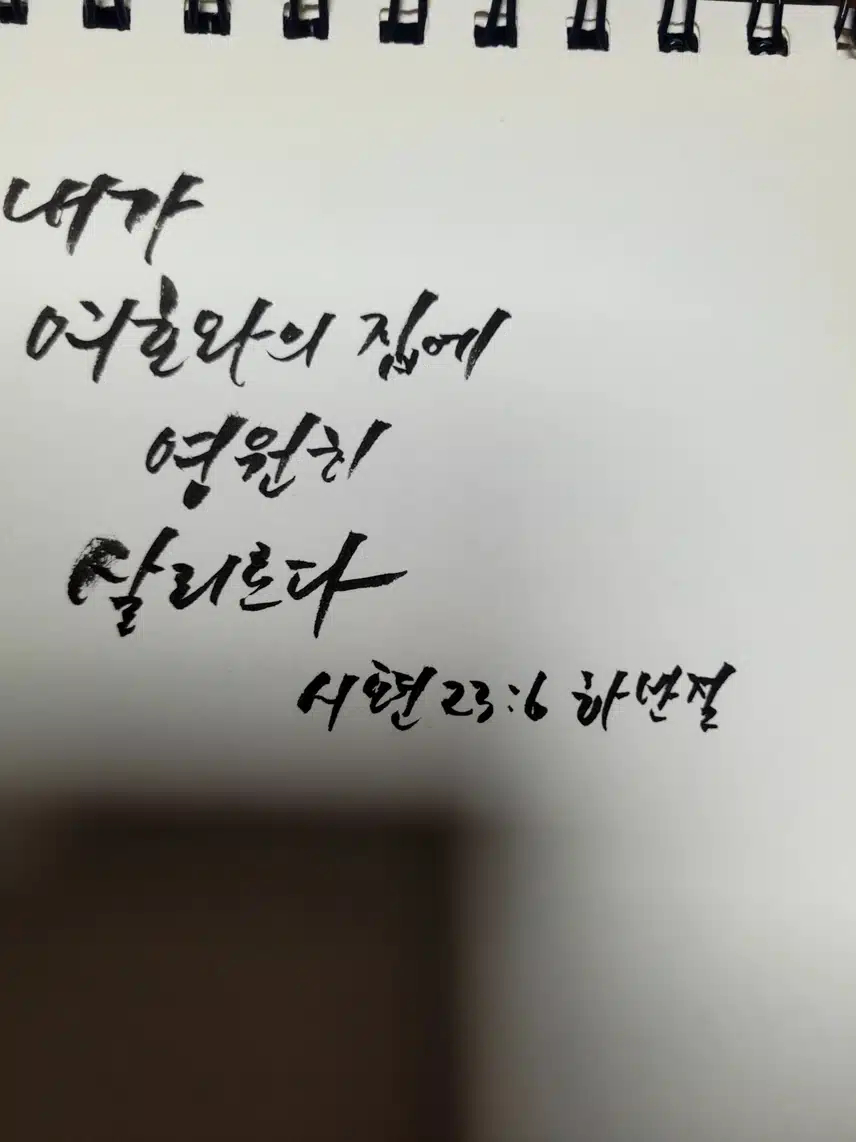 내가
여호와의 집에
영원히
살리로다
시편 23:6 하반절